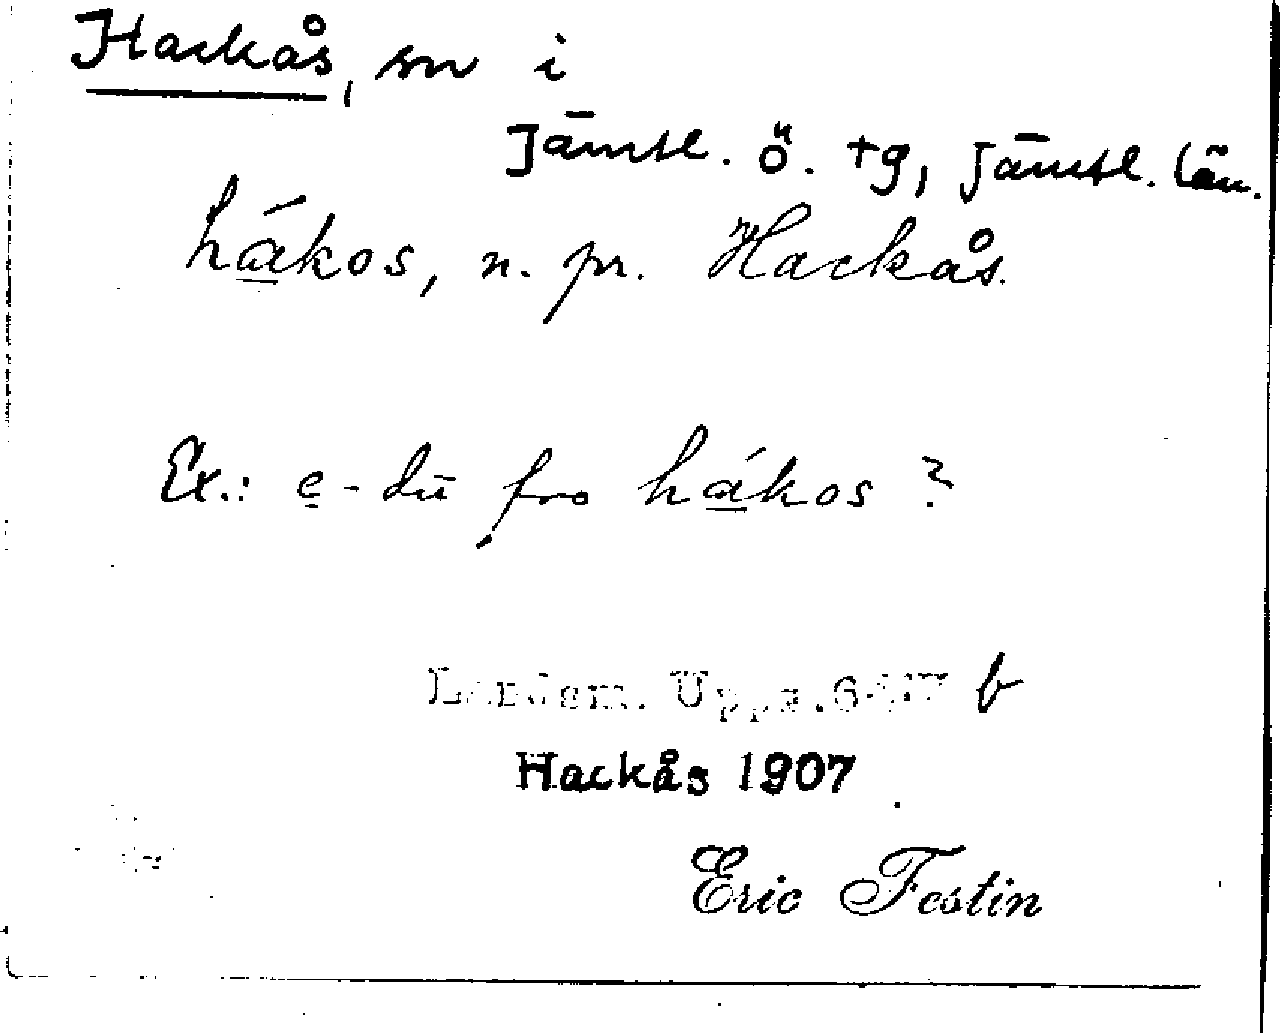 Hackås, sn i
Jämtl. ö. tg, Jämtl. län.
hákos, n. pr. Hackås.
Ex.: e - du fro hákos ?
Landsm. Upps. b
Hackås 1907
Eric Festin